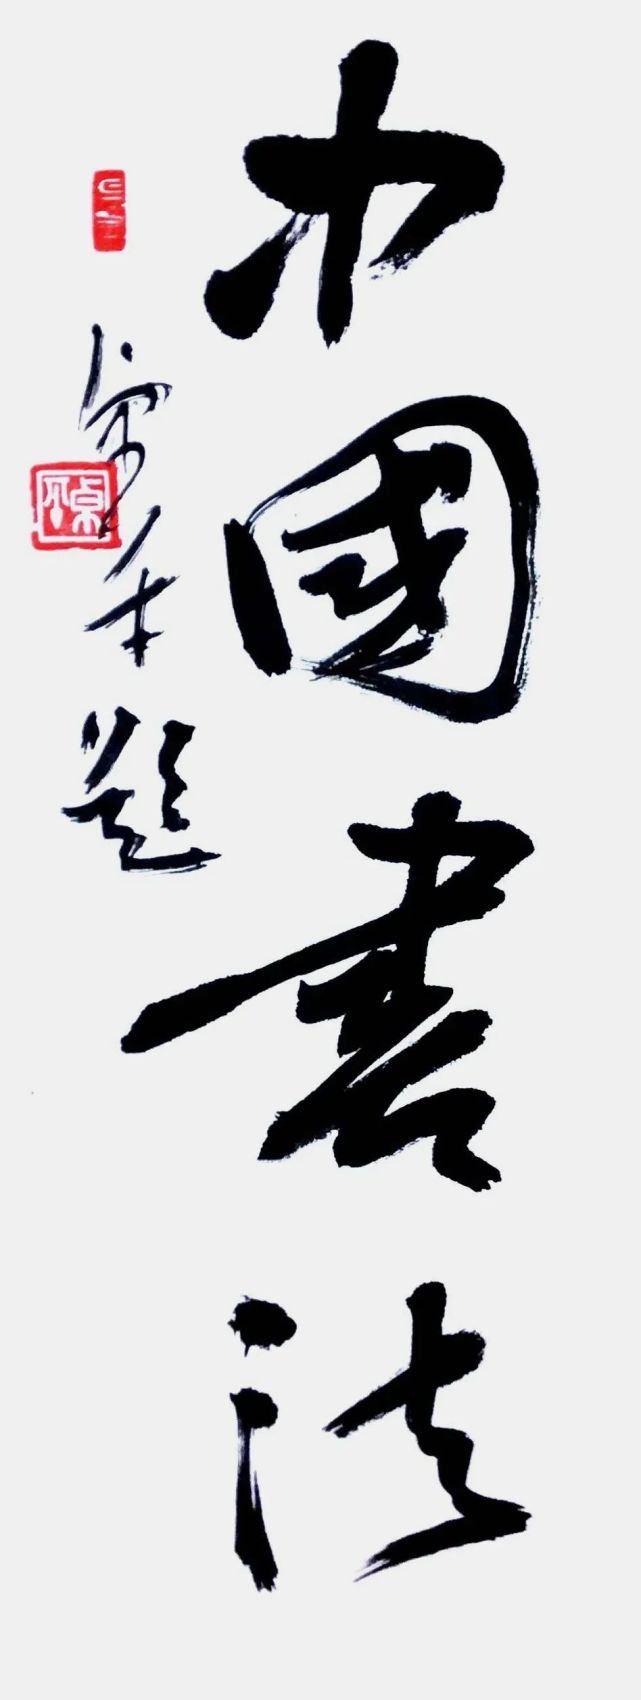 中國書法
題